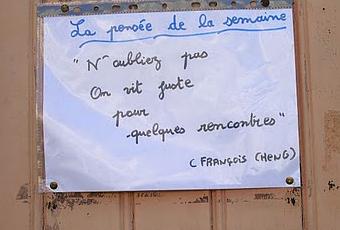 La pensée de la semaine
"N'oubliez pas
On vit juste
pour
quelques rencontres"
(FRANÇOIS CHENG)